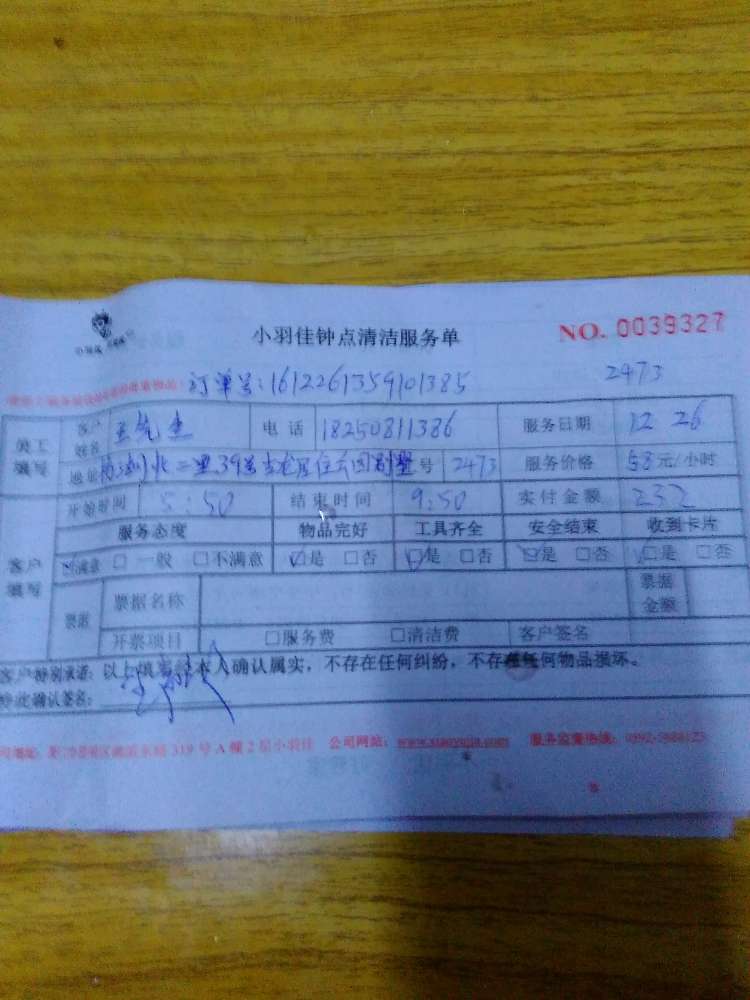 小羽佳钟点清洁服务单 NO. 0039327
订单号:1612261359101385 2473
美工填写 客户姓名 王先生 电话 18250811386 服务日期 12 26
地址 二里39号 号 2473 服务价格 58元/小时
开始时间 5:50 结束时间 9:50 实付金额 232
客户填写 服务态度 物品完好 工具齐全 安全结束 收到卡片
☑满意 □一般 □不满意 ☑是 □否 ☑是 □否 ☑是 □否 ☑是 □否
票据 票据名称 票据金额
开票项目 □服务费 □清洁费 客户签名
客户特别承诺:以上填写经本人确认属实,不存在任何纠纷,不存在任何物品损坏。
特此确认签名:
319号A幢2层小羽佳 公司网站: www.xiaoyujia.com 服务监督热线: